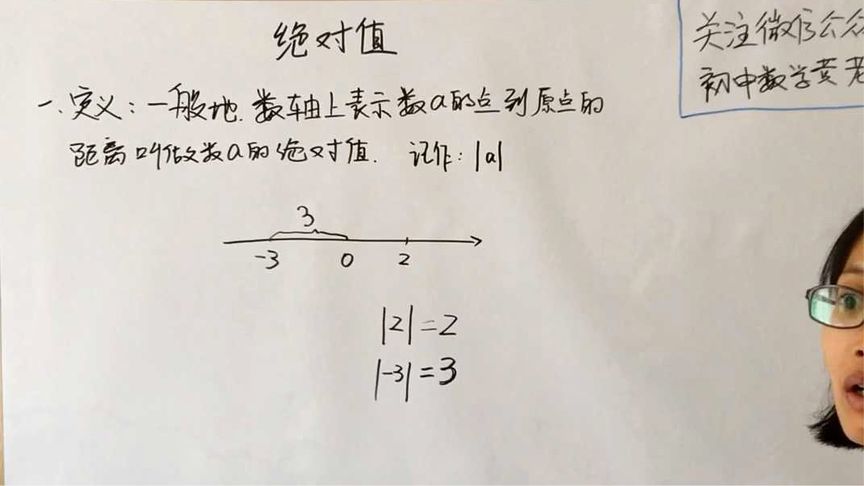 绝对值
关注微信公众
初中数学黄老
一、定义：一般地.数轴上表示数a的点到原点的
距离叫做数a的绝对值. 记作：|a|
3
-3 0 2
|2|=2
|-3|=3